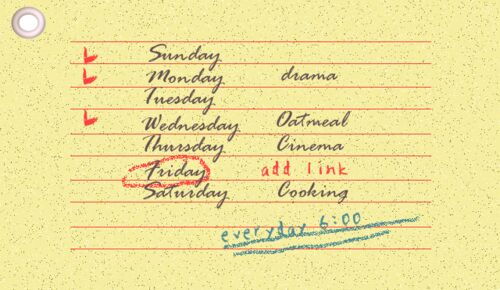 Sunday
Monday drama
Tuesday
Wednesday Oatmeal
Thursday Cinema
Friday add link
Saturday Cooking
everyday 6:00